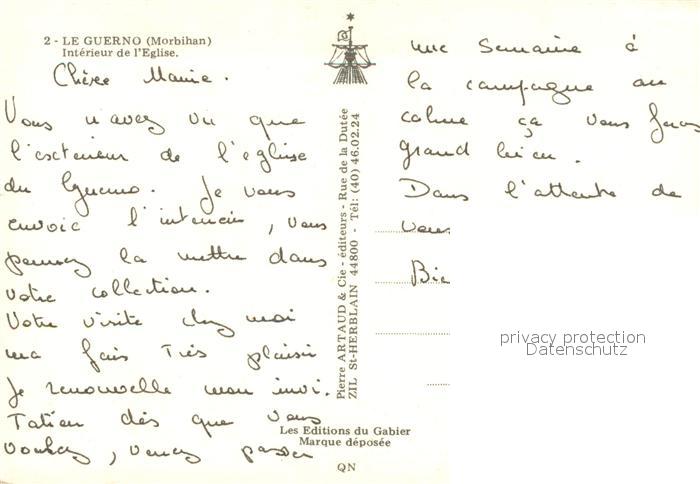 2 - LE GUERNO (Morbihan)
Intérieur de l'Eglise.
Chère Mamie.
Vous n'avez vu que
l'exterieur de l'eglise
du Guerno. Je vous
envoie l'interieur, vous
pourrez la mettre dans
votre collection.
Votre visite chez moi
ma fais Très plaisir
Je renouvelle mon invi.
Tation dès que vous
voulez, venez passer
une semaine à
la campagne au
calme ça vous feras
grand bien.
Dans l'attente de
vous
Bie
Pierre ARTAUD & Cie - éditeurs - Rue de la Dutée
ZIL St-HERBLAIN 44800 - Tél: (40) 46.02.24
Les Editions du Gabier
Marque déposée
QN
privacy protection
Datenschutz